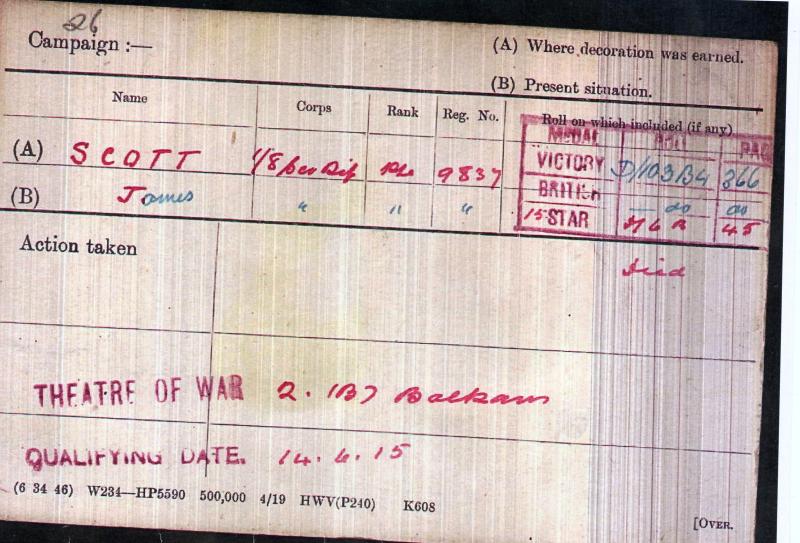 26
Campaign :—
(A) Where decoration was earned.
(B) Present situation.
Name Corps Rank Reg. No. Roll on which included (if any)
MEDAL ROLL PAGE
(A) SCOTT 1/8 Sco Rif Pte 9837 VICTORY D/103B4 366
(B) James " " " BRITISH — do do
15 STAR 45
Action taken
Died
THEATRE OF WAR 2. (B) Balkans
QUALIFYING DATE. 14.6.15
(6 34 46) W234—HP5590 500,000 4/19 HWV(P240) K608
[OVER.